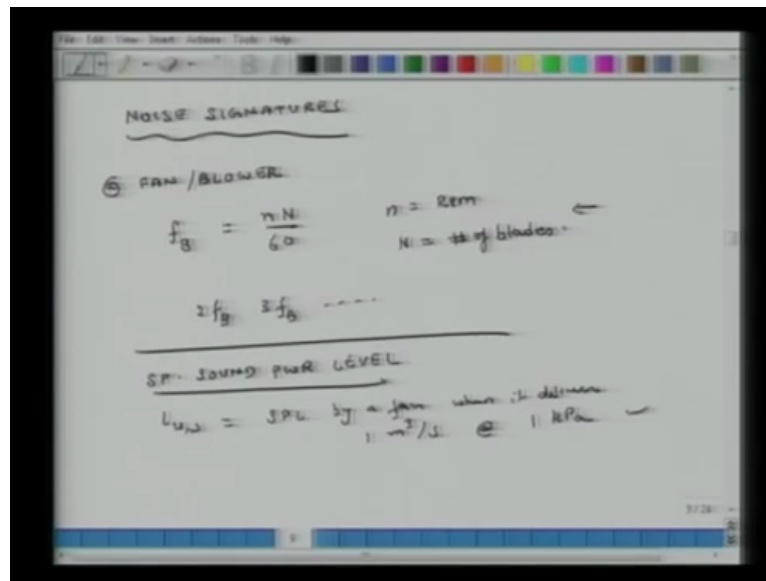 File Edit View Insert Actions Tools Help
NOISE SIGNATURES
FAN / BLOWER
f_B = nN/60 n = RPM ←
N = # of blades.
2f_B 3f_B ----
SP. SOUND PWR LEVEL
= SPL by a fan when it delivers
1 m³/s @ 1 kPa